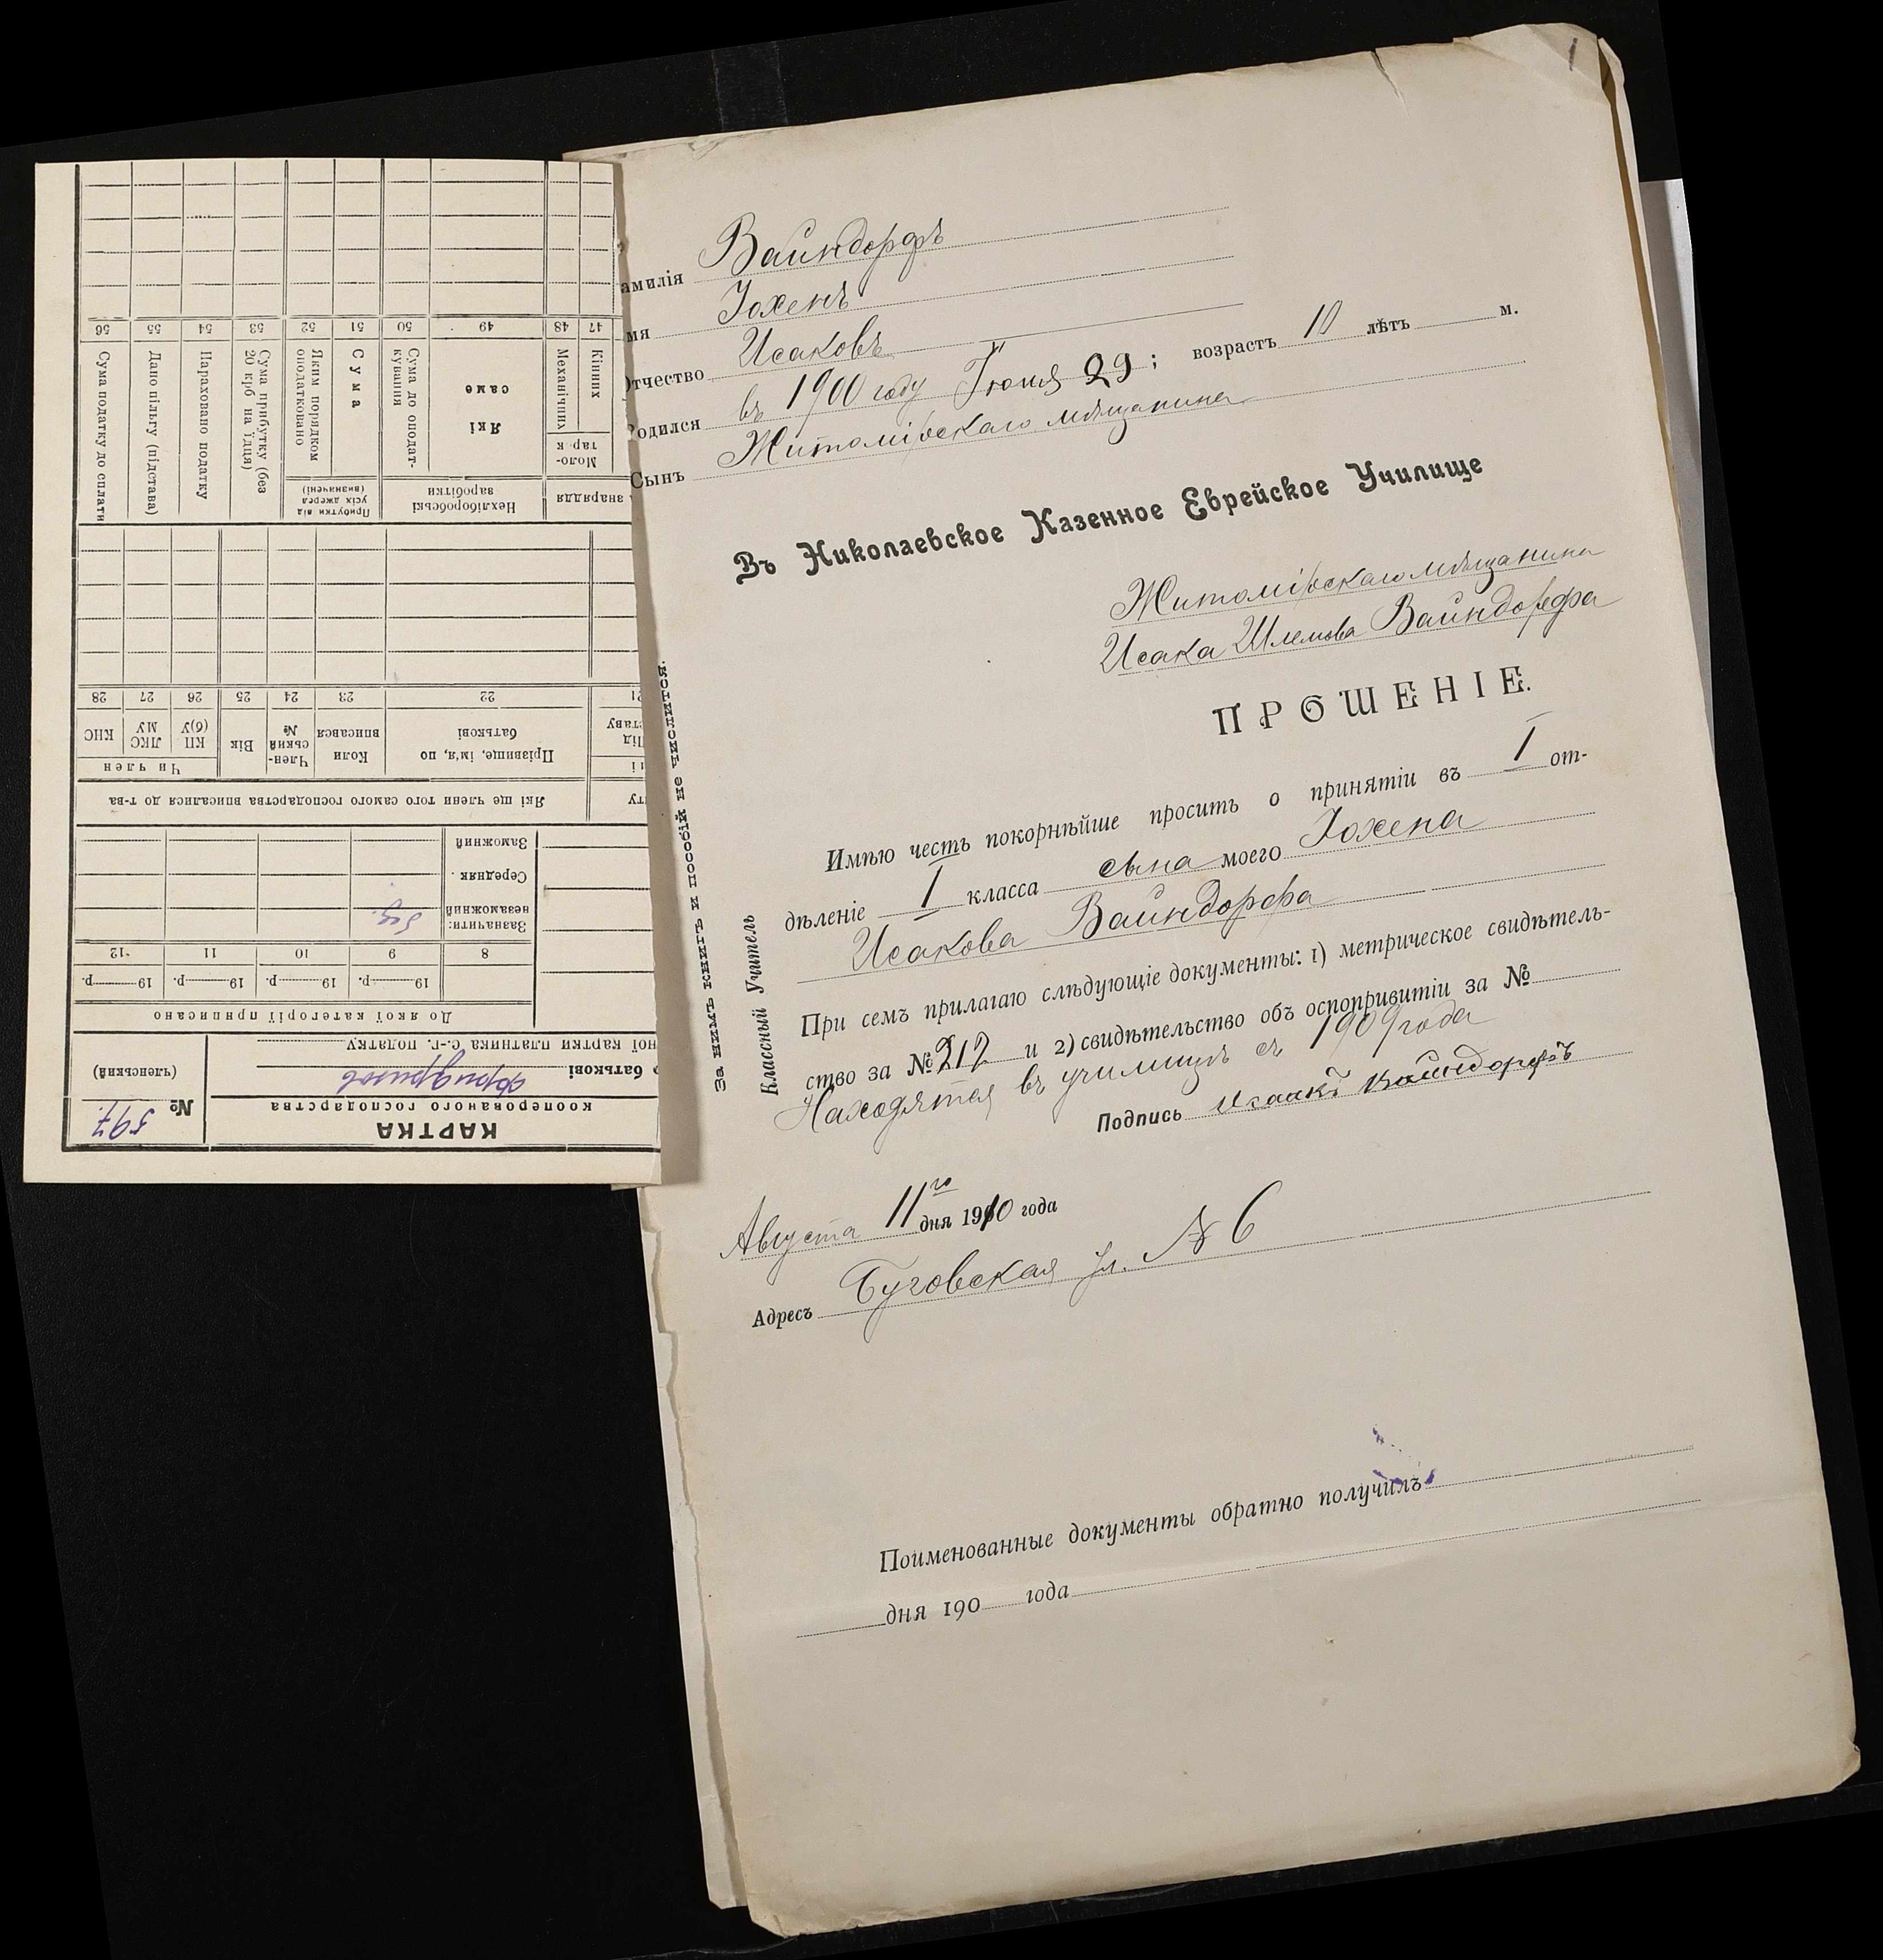 1
амилія Вайндорфъ
мя Іохенъ
Отчество Исаковъ
Родился въ 1900 году Іюня 29; возрастъ 10 лѣтъ м.
Сынъ Житомірскаго мѣщанина
Въ Николаевское Казенное Еврейское Училище
Житомірскаго мѣщанина
Исака Шлемова Вайндорфа
ПРОШЕНІЕ.
Имѣю честь покорнѣйше просить о принятіи въ I от-
дѣленіе I класса сына моего Іохена
Исакова Вайндорфа
При семъ прилагаю слѣдующіе документы: 1) метрическое свидѣтель-
ство за № 217 и 2) свидѣтельство объ оспопривитіи за №
Находятся въ училищѣ съ 1909 года
Подпись Исаакъ Вайндорфъ
Августа 11го дня 1910 года
Адресъ Буговская ул. № 6
Поименованные документы обратно получилъ
дня 190 года
За нимъ книгъ и пособій не числится.
Классный Учитель
КАРТКА
кооперованого господарства
№ 597.
(членський)
батькові
ної картки платника с.-г. податку
До якої категорії приписано
19 р. 19 р. 19 р. 19 р.
8 9 10 11 12
Зазначити:
незаможний
Середняк
Заможний
Які ще члени того самого господарства вписалися до т-ва
Прізвище, ім'я, по батькові
Коли вписався
Член-ський №
Вік
Чи член
КП (б)У
ЛКСМУ
КНС
21 22 23 24 25 26 27 28
знаряддя
Моло-тарок
Кінних
Механічних
Нехліборобські заробітки
Які саме
Сума до оподат-кування
Прибутки від усіх джерел (визначені)
Сума
Яким порядком оподатковано
Сума прибутку (без 20 крб на їдця)
Нараховано податку
Дано пільгу (підстава)
Сума податку до сплати
47 48 49 50 51 52 53 54 55 56